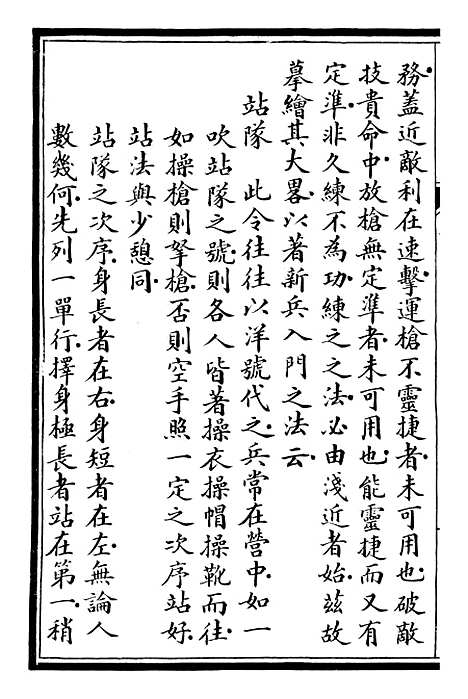 務蓋近敵利在速擊運槍不靈捷者未可用也破敵
技貴命中放槍無定準者未可用也能靈捷而又有
定準非久練不為功練之之法必由淺近者始茲故
摹繪其大畧以著新兵入門之法云
站隊　此令往往以洋號代之兵常在營中如一
吹站隊之號則各人皆著操衣操帽操靴而往
如操槍則拏槍否則空手照一定之次序站好
站法與少憩同
站隊之次序身長者在右身短者在左無論人
數幾何先列一單行擇身極長者站在第一稍